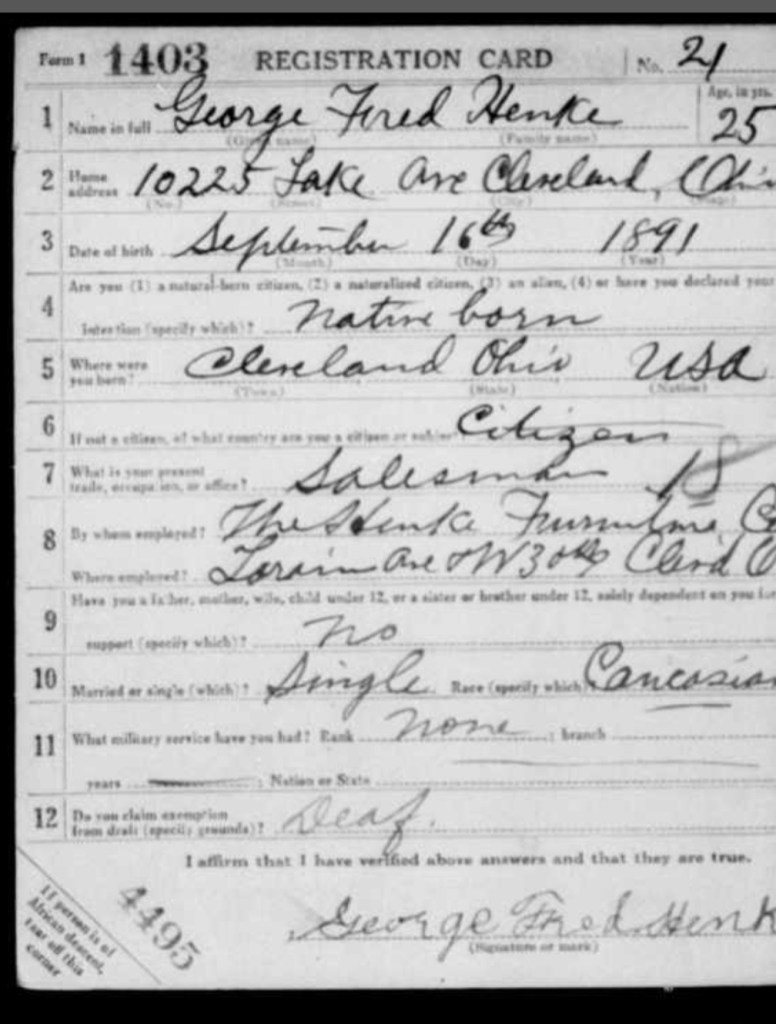 Form 1 1403 REGISTRATION CARD No. 21
1 Name in full George Fred Henke Age, in yrs. 25
(Given name) (Family name)
2 Home address 10225 Lake Ave Cleveland, Ohio
(No.) (Street) (City) (State)
3 Date of birth September 16th 1891
(Month) (Day) (Year)
4 Are you (1) a natural-born citizen, (2) a naturalized citizen, (3) an alien, (4) or have you declared your
intention (specify which)? Native born
5 Where were you born? Cleveland Ohio USA
(Town) (State) (Nation)
6 If not a citizen, of what country are you a citizen or subject Citizen
7 What is your present trade, occupation, or office? Salesman 18
8 By whom employed? The Henke Furniture
Where employed? Lorain Ave & W 30th Clevd O
9 Have you a father, mother, wife, child under 12, or a sister or brother under 12, solely dependent on you for
support (specify which)? No
10 Married or single (which)? Single Race (specify which) Caucasian
11 What military service have you had? Rank none ; branch
years ; Nation or State
12 Do you claim exemption from draft (specify grounds)? Deaf.
I affirm that I have verified above answers and that they are true.
If person is of
African descent,
tear off this
corner
4495
George Fred Henk
(Signature or mark)